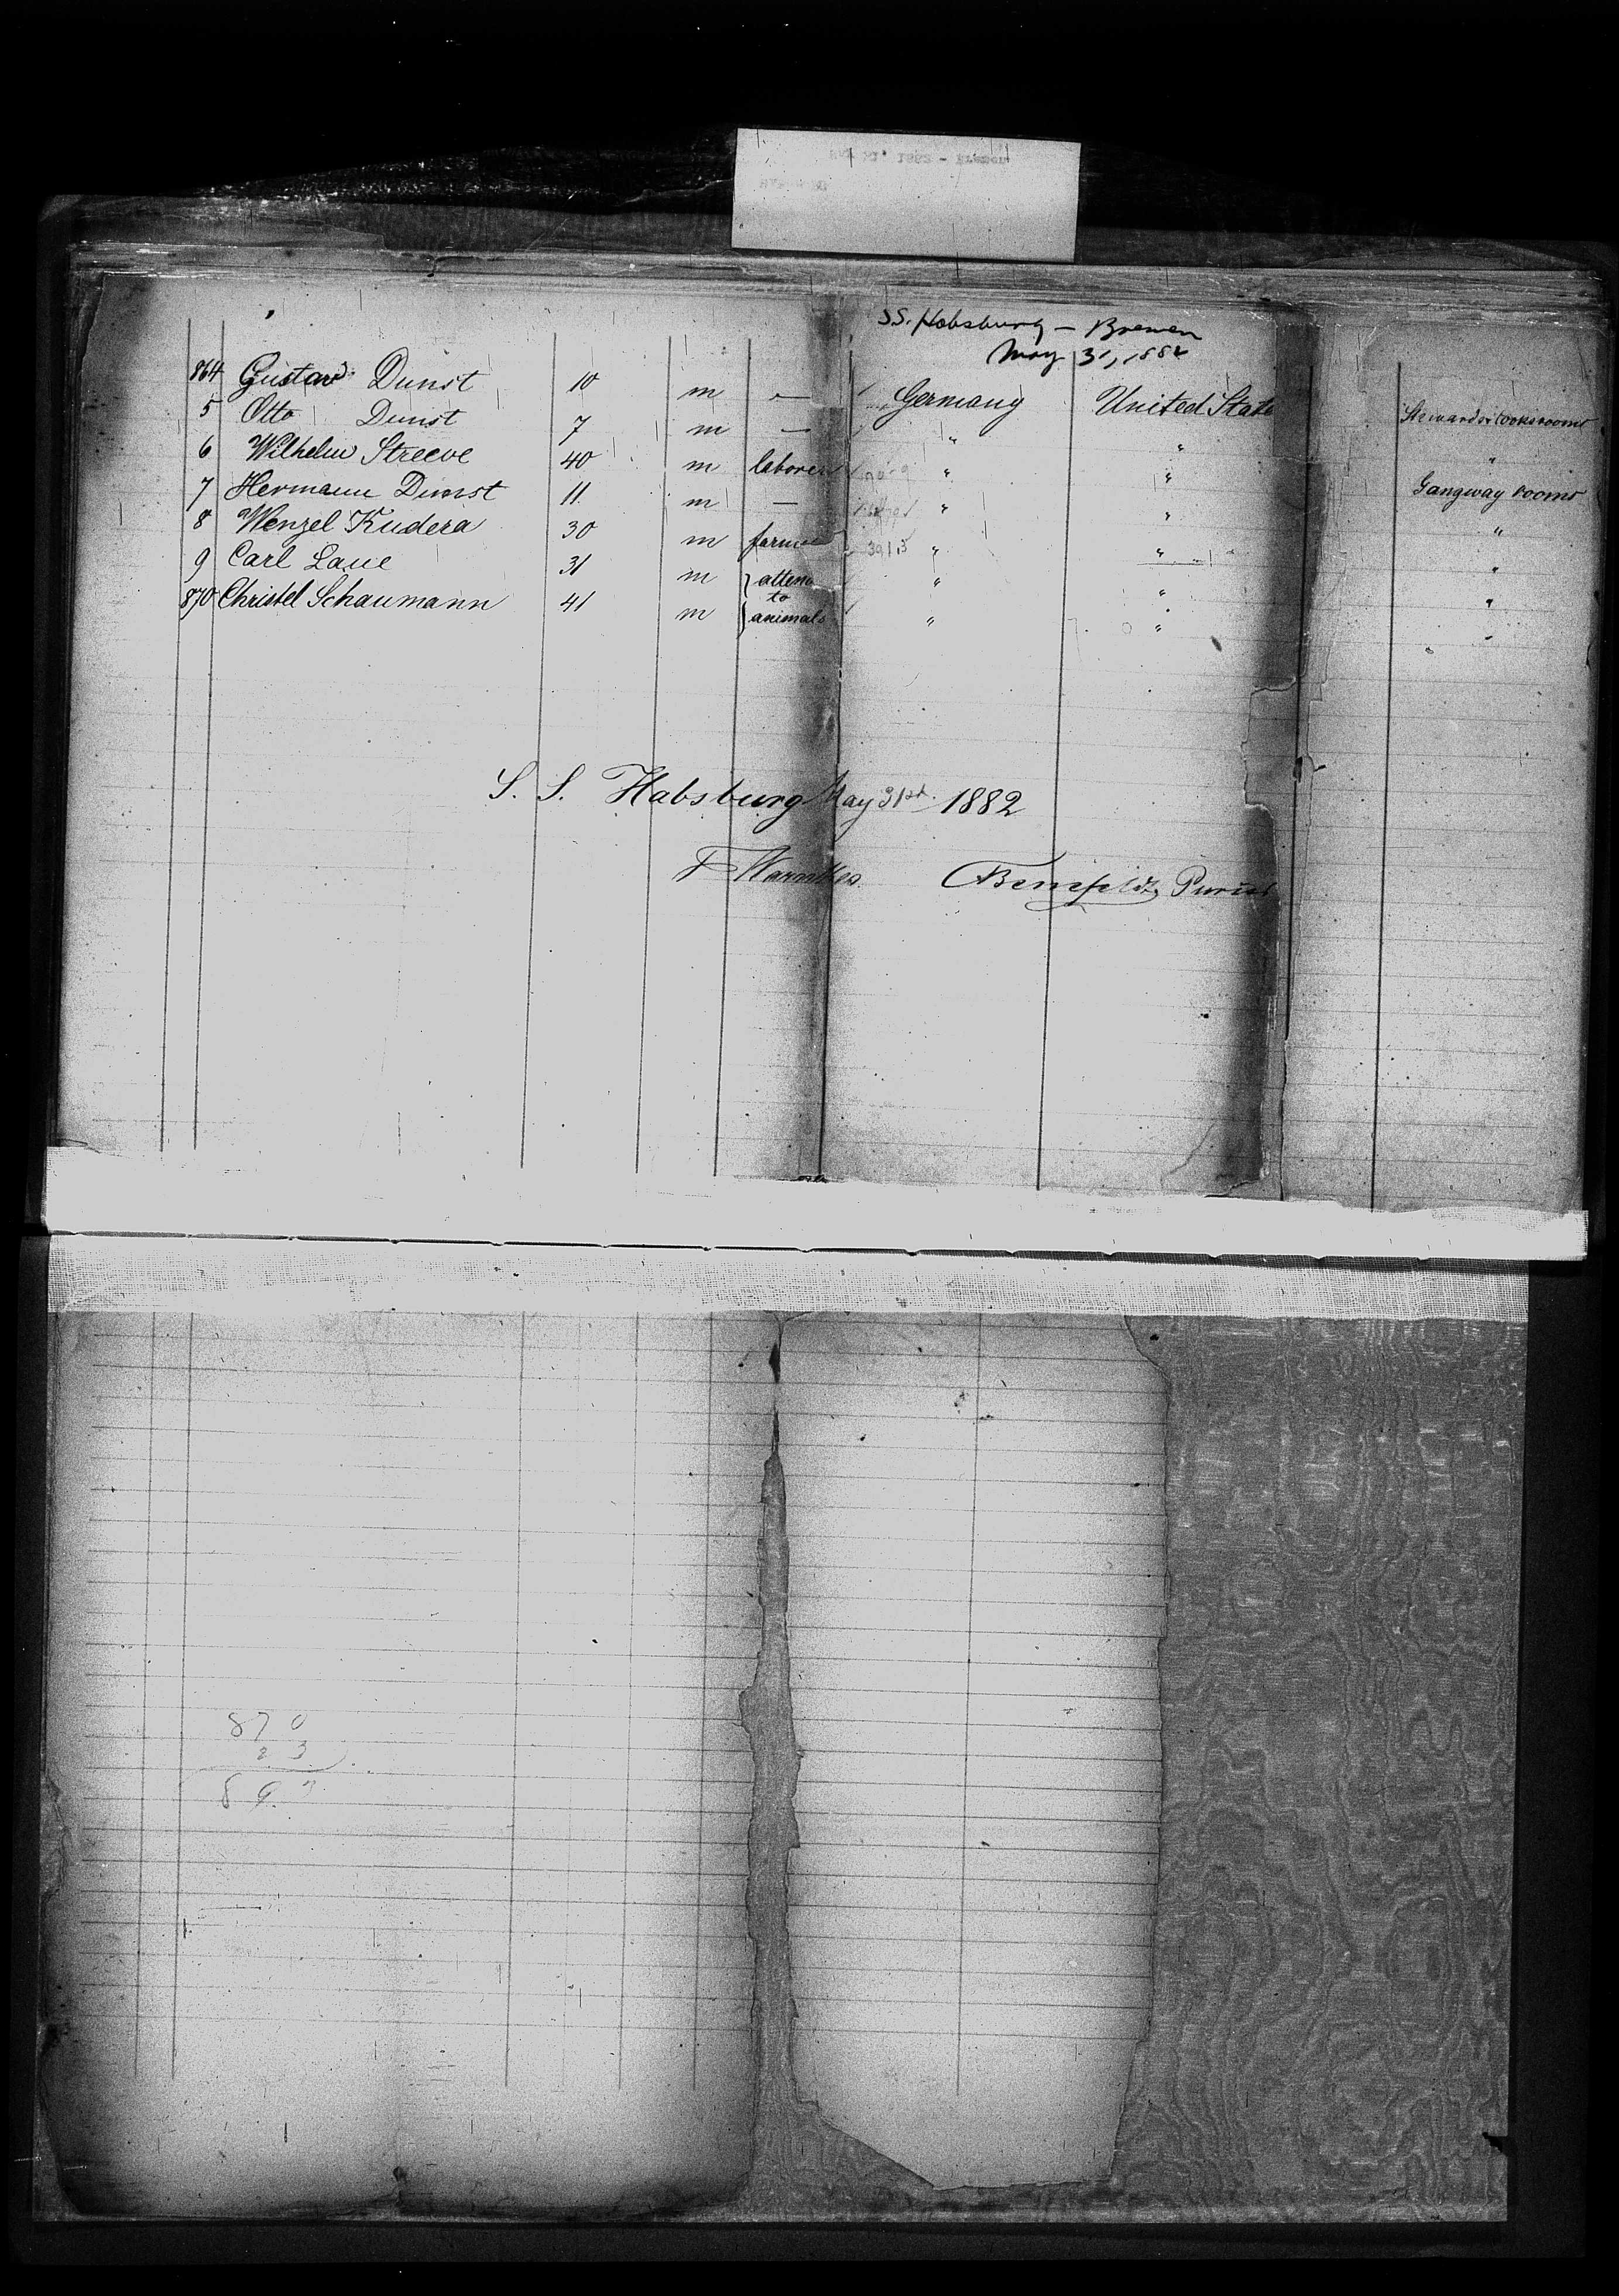 SS. Habsburg – Bremen
May 31, 1882
864 Gustav Dunst 10 m — Germany United State Stewards & Cooks rooms
5 Otto Dunst 7 m — " " "
6 Wilhelm Streeve 40 m laborer " " Gangway rooms
7 Hermann Dunst 11 m — " " "
8 Wenzel Kudera 30 m farmer " " "
9 Carl Laue 31 m } attend " " "
to
870 Christel Schaumann 41 m } animals " " "
S. S. Habsburg May 31st 1882
870
23